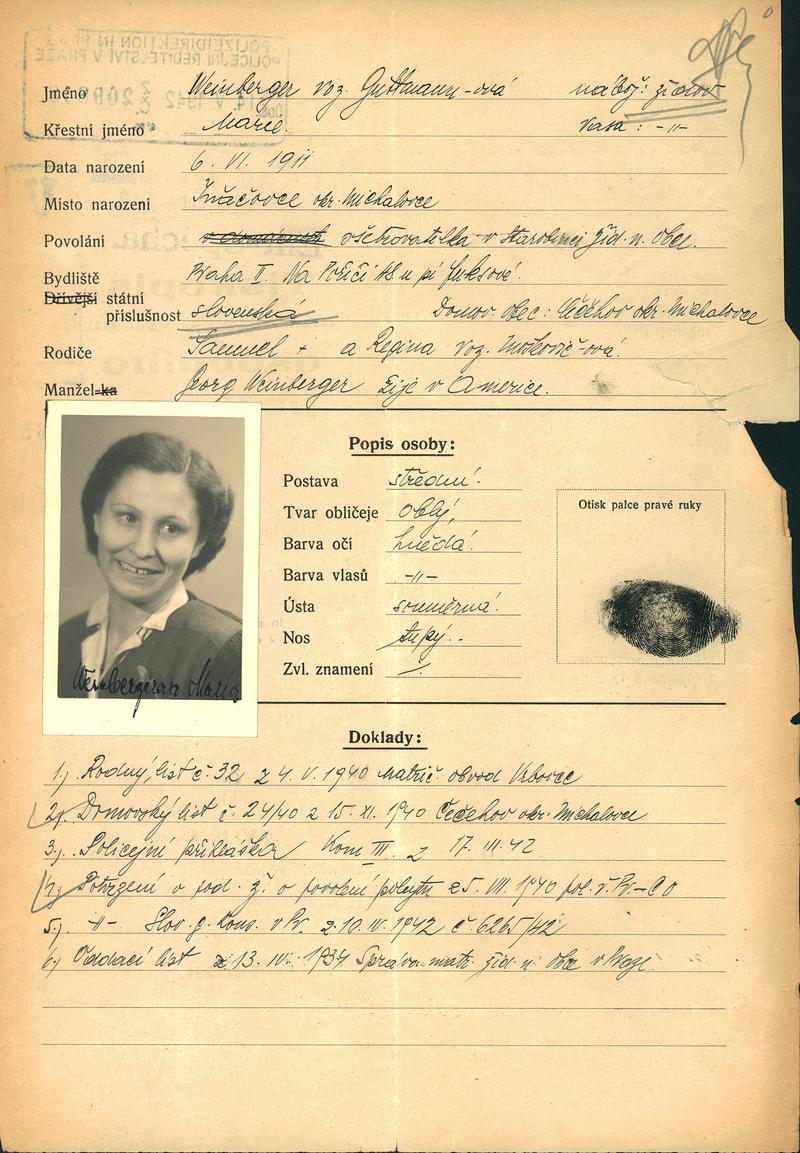 POLIZEIDIREKTION IN
POLICEJNÍ ŘEDITELSTVÍ V PRAZE
V. 1942
Jméno Weinberger roz. Guttmann-ová nábož: židov
Křestní jméno Marie. rasa: -"-
Data narození 6. VI. 1911
Místo narození Iňačovce okr. Michalovce
Povolání v domácnosti ošetřovatelka v Starobinci žid. n. Obce.
Bydliště Praha II. Na Poříčí u pí Fuksové.
Dřívější státní
příslušnost slovenská Domov. obec: Čečehov okr. Michalovce
Rodiče Samuel + a Regina roz.
Manžel-ka Georg Weinberger žije v Americe.
Popis osoby:
Postava střední.
Tvar obličeje oblý,
Barva očí hnědá.
Barva vlasů -"-
Ústa souměrná.
Nos tupý..
Zvl. znamení /.
Otisk palce pravé ruky
Weinbergerova Marie
Doklady:
1.) Rodný list č. 32 z 4. V. 1940 matrič. obvod Vrbovec
2). Domovský list č. 24/40 z 15. XI. 1940 Čečehov okr. Michalovce
3.). Policejní přihláška Kom III. z 17. III. 42
4.) Potvrzení o pod. ž. o povolení pobytu z 5. VII. 1940 pol. ř. Pr.
5.) -"- Slov. g. Kons. v Pr. z. 10. IV. 1942 č. 6265/42
6.) Oddací list z 13. 1937. Správa matr. žid. n. obce v Praze.